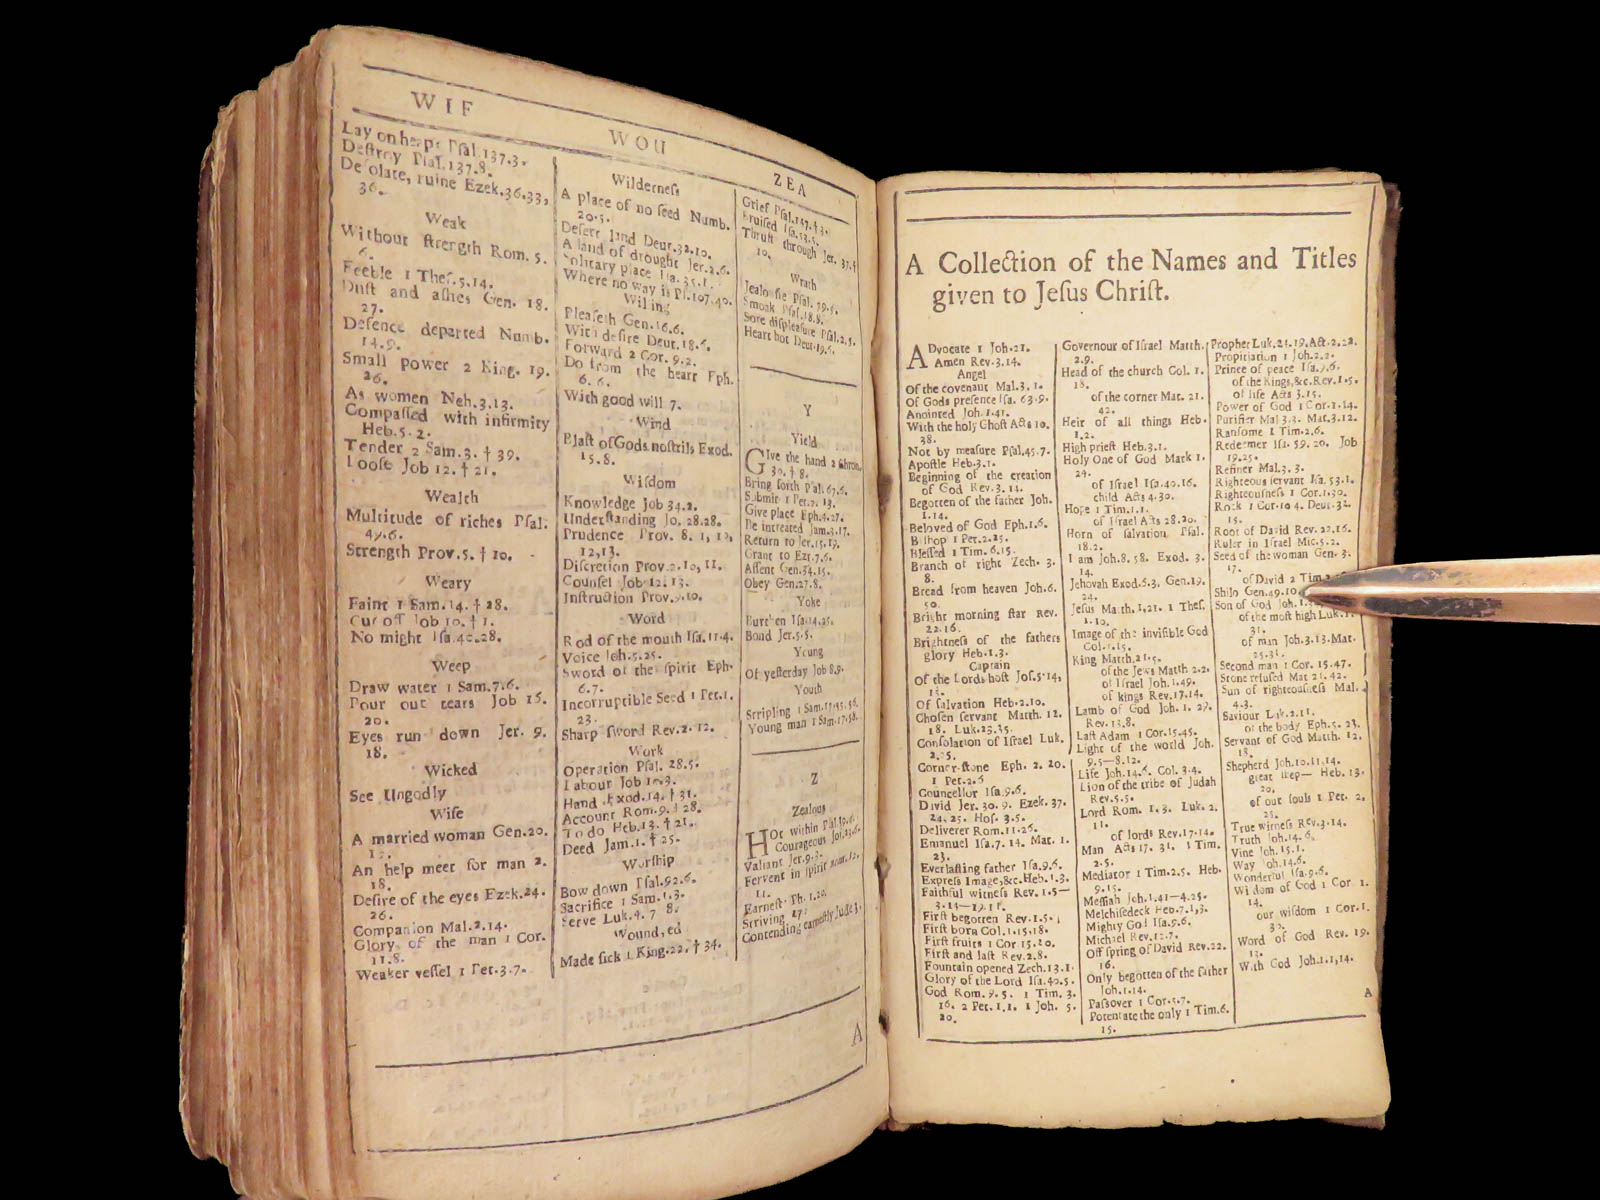 WIF
Lay on heaps Psal.137.3.
Deſtroy Pſal.137.8.
Deſolate, ruine Ezek.36.33,
36.
Weak
Without ſtrength Rom. 5.
6.
Feeble 1 Theſ.5.14.
Duſt and aſhes Gen. 18.
27.
Defence departed Numb.
14.9.
Small power 2 King. 19.
26.
As women Neh.3.13.
Compaſſed with infirmity
Heb.5.2.
Tender 2 Sam.3. † 39.
Looſe Job 12. † 21.
Wealth
Multitude of riches Pſal.
49.6.
Strength Prov.5. † 10.
Weary
Faint 1 Sam.14. † 28.
Cut off Job 10. † 1.
No might Iſa.40.28.
Weep
Draw water 1 Sam.7.6.
Pour out tears Job 16.
20.
Eyes run down Jer. 9.
18.
Wicked
See Ungodly
Wife
A married woman Gen.20.
An help meet for man 2.
18.
Deſire of the eyes Ezek.24.
26.
Companion Mal.2.14.
Glory of the man 1 Cor.
11.8.
Weaker veſſel 1 Pet.3.7.
WOU
Wilderneſs
A place of no ſeed Numb.
20.5.
Deſert land Deut.32.10.
A land of drought Jer.2.6.
Solitary place Iſa.35.1.
Where no way is Pſ.107.40.
Willing
Pleaſeth Gen.16.6.
With deſire Deut.18.6.
Forward 2 Cor. 9.2.
Do from the heart Eph.
6.6.
With good will 7.
Wind
Blaſt of Gods noſtrils Exod.
15.8.
Wiſdom
Knowledge Job 34.2.
Underſtanding Jo. 28.28.
Prudence Prov. 8. 1, 12,
12,13.
Diſcretion Prov.2.10, 11.
Counſel Job 12. 13.
Inſtruction Prov.9.10.
Word
Rod of the mouth Iſa.11.4.
Voice Joh.5.25.
Sword of the ſpirit Eph.
6.7.
Incorruptible Seed 1 Pet.1.
23.
Sharp ſword Rev.2.12.
Work
Operation Pſal. 28.5.
Labour Job 10.3.
Hand Exod.14. † 31.
Account Rom.9. † 28.
To do Heb.13. † 21.
Deed Jam.1. † 25.
Worſhip
Bow down Pſal.92.6.
Sacrifice 1 Sam.1.3.
Serve Luk.4. 7 8.
Wound, ed
Made ſick 1 King.22. † 34.
ZEA
Grief Pſal.147. † 3.
Bruiſed Iſa.53.5.
Thruſt through Jer. 37. †
10.
Wrath
Jealouſie Pſal. 79.5.
Smoak Pſal.18.8.
Sore diſpleaſure Pſal.2.5.
Heart hot Deut.19.6.
Y
Yield
GIve the hand 2 Chron.
30. † 8.
Bring forth Pſal.67.6.
Submit 1 Pet.2. 13.
Give place Eph.4.27.
Be intreated Jam.3.17.
Return to Jer.15.19.
Grant to Ezr.7.6.
Aſſent Gen.34.15.
Obey Gen.27.8.
Yoke
Burthen Iſa.14.25.
Bond Jer.5.5.
Young
Of yeſterday Job 8.9.
Youth
Stripling 1 Sam.17.55,56.
Young man 1 Sam.17.58.
Z
Zealous
HOt within Pſal.39.
Courageous Joſ.23.6.
Valiant Jer.9.3.
Fervent in ſpirit Rom.12.
11.
Earneſt Th. 1.20.
Striving 27.
Contending earneſtly Jude 3.
A
A Collection of the Names and Titles
given to Jeſus Chriſt.
ADvocate 1 Joh.21.
Amen Rev.3.14.
Angel
Of the covenant Mal.3. 1.
Of Gods preſence Iſa. 63.9.
Anointed Joh.1.41.
With the holy Ghoſt Acts 10.
38.
Not by meaſure Pſal.45.7.
Apoſtle Heb.3.1.
Beginning of the creation
of God Rev.3. 14.
Begotten of the father Joh.
1.14.
Beloved of God Eph.1.6.
Biſhop 1 Pet.2.25.
Bleſſed 1 Tim.6.15.
Branch of right Zech. 3.
8.
Bread from heaven Joh.6.
50.
Bright morning ſtar Rev.
22.16.
Brightneſs of the fathers
glory Heb.1.3.
Captain
Of the Lords hoſt Joſ.5.14,
15.
Of ſalvation Heb.2.10.
Choſen ſervant Matth. 12.
18. Luk.23.35.
Conſolation of Iſrael Luk.
2.25.
Corner-ſtone Eph. 2. 20.
1 Pet.2.6
Councellor Iſa.9.6.
David Jer. 30. 9. Ezek. 37.
24,25. Hoſ. 3.5.
Deliverer Rom.11.26.
Emanuel Iſa.7.14. Mat. 1.
23.
Everlaſting father Iſa.9.6.
Expreſs Image,&c.Heb.1.3.
Faithful witneſs Rev. 1.5—
3.14—19.11.
Firſt begotten Rev.1.5.
Firſt born Col.1.15,18.
Firſt fruits 1 Cor.15.20.
Firſt and laſt Rev.2.8.
Fountain opened Zech.13.1.
Glory of the Lord Iſa.40.5.
God Rom. 9.5. 1 Tim. 3.
16. 2 Pet. 1.1. 1 Joh. 5.
20.
Governour of Iſrael Matth.
2.9.
Head of the church Col. 1.
18.
of the corner Mat. 21.
42.
Heir of all things Heb.
1.2.
High prieſt Heb.3.1.
Holy One of God Mark 1.
24.
of Iſrael Iſa.40.16.
child Acts 4.30.
Hope 1 Tim.1.1.
of Iſrael Acts 28.20.
Horn of ſalvation Pſal.
18.2.
I am Joh.8. 58. Exod. 3.
14.
Jehovah Exod.6.3. Gen.19.
24.
Jeſus Matth.1.21. 1 Theſ.
1.10.
Image of the inviſible God
Col.1.15.
King Matth.21.5.
of the Jews Matth 2.2.
of Iſrael Joh.1.49.
of kings Rev.17.14.
Lamb of God Joh. 1. 29.
Rev.13.8.
Laſt Adam 1 Cor.15.45.
Light of the world Joh.
9.5—8.12.
Life Joh.14.6. Col. 3.4.
Lion of the tribe of Judah
Rev.5.5.
Lord Rom. 1.3. Luk. 2.
11.
of lords Rev.17.14.
Man Acts 17. 31. 1 Tim.
2.5.
Mediator 1 Tim.2.5. Heb.
9.15.
Meſſiah Joh.1.41—4.25.
Melchiſedeck Heb.7.1,3.
Mighty God Iſa.9.6.
Michael Rev.12.7.
Off ſpring of David Rev.22.
16.
Only begotten of the father
Joh.1.14.
Paſſover 1 Cor.5.7.
Potentate the only 1 Tim.6.
15.
Prophet Luk.21.19.Act.2.22.
Propitiation 1 Joh.2.2.
Prince of peace Iſa.9.6.
of the Kings,&c.Rev.1.5.
of life Acts 3.15.
Power of God 1 Cor.1.14.
Purifier Mal 3.3. Mat.3.12.
Ranſome 1 Tim.2.6.
Redeemer Iſa. 59.20. Job
19.25.
Refiner Mal.3. 3.
Righteous ſervant Iſa.53.1.
Righteouſneſs 1 Cor.1.30.
Rock 1 Cor.10 4. Deut.32.
15.
Root of David Rev. 22.16.
Ruler in Iſrael Mic.5.2.
Seed of the woman Gen. 3.
17.
of David 2 Tim.
Shilo Gen.49.10.
Son of God Joh.1.
of the moſt high Luk.1.
31.
of man Joh.3.13.Mat.
25.31.
Second man 1 Cor. 15.47.
Stone refuſed Mat 21. 42.
Sun of righteouſneſs Mal.
4.3.
Saviour Luk.2.11.
of the body Eph.5. 23.
Servant of God Matth. 12.
18.
Shepherd Joh.10.11,14.
great ſhep— Heb. 13.
20.
of our ſouls 1 Pet. 2.
25.
True witneſs Rev.3.14.
Truth Joh.14.6.
Vine Joh.15.1.
Way Joh.14.6.
Wonderful Iſa.9.6.
Wiſdom of God 1 Cor 1.
14.
our wiſdom 1 Cor.1.
30.
Word of God Rev. 19.
13.
With God Joh.1.1,14.
A